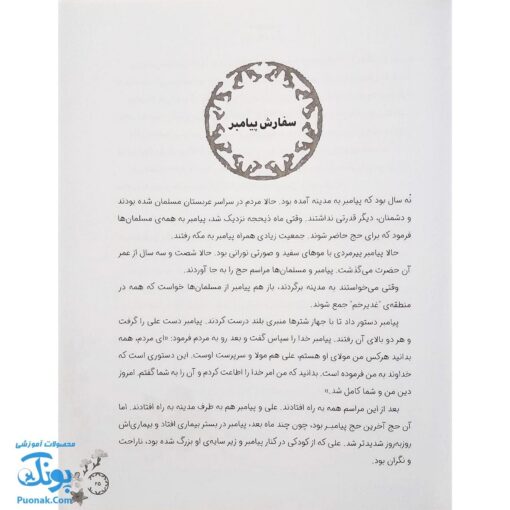 سفارش پیامبر
نُه سال بود که پیامبر به مدینه آمده بود. حالا مردم در سراسر عربستان مسلمان شده بودند
و دشمنان، دیگر قدرتی نداشتند. وقتی ماه ذیحجه نزدیک شد، پیامبر به همه‌ی مسلمان‌ها
فرمود که برای حج حاضر شوند. جمعیت زیادی همراه پیامبر به مکه رفتند.
حالا پیامبر پیرمردی با موهای سفید و صورتی نورانی بود. حالا شصت و سه سال از عمر
آن حضرت می‌گذشت. پیامبر و مسلمان‌ها مراسم حج را به جا آوردند.
وقتی می‌خواستند به مدینه برگردند، باز هم پیامبر از مسلمان‌ها خواست که همه در
منطقه‌ی "غدیرخم" جمع شوند.
پیامبر دستور داد تا با جهاز شترها منبری بلند درست کردند. پیامبر دست علی را گرفت
و هر دو بالای آن رفتند. پیامبر خدا را سپاس گفت و بعد رو به مردم فرمود: «ای مردم، همه
بدانید هرکس من مولای او هستم، علی هم مولا و سرپرست اوست. این دستوری است که
خداوند به من فرموده است. بدانید که من امر خدا را اطاعت کردم و آن را به شما گفتم. امروز
دین من و شما کامل شد.»
بعد از این مراسم همه به راه افتادند. علی و پیامبر هم به طرف مدینه به راه افتادند. اما
آن حج آخرین حج پیامبر بود، چون چند ماه بعد، پیامبر در بستر بیماری افتاد و بیماری‌اش
روزبه‌روز شدیدتر شد. علی که از کودکی در کنار پیامبر و زیر سایه‌ی او بزرگ شده بود، ناراحت
و نگران بود.
۲۵
محصولات آموزشی
پونک
Puonak.Com